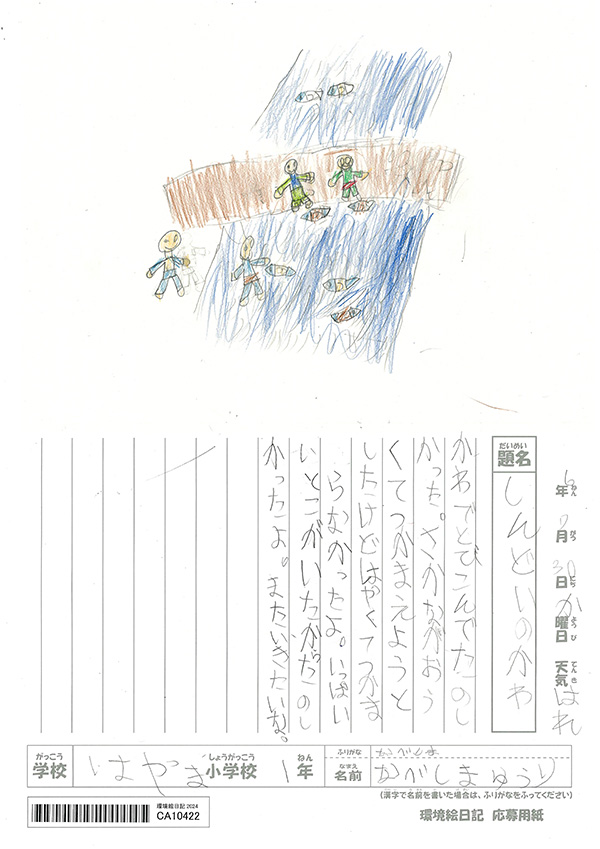 6年7月30日か曜日 天気はれ
ねん がつ にち ようび てんき
だいめい
題名
しんどいのかわ
かわでとびこんでたのし
かった。さかながおう
くてつかまえようと
したけどはやくてつかま
らなかったよ。いっぱい
いとこがいたからたのし
かったよ。またいきたいな。
がっこう
学校
はやま
しょうがっこう
小学校
1
ねん
年
ふりがな
かべしま
なまえ
名前
かべしまゆうり
(漢字で名前を書いた場合は、ふりがなをふってください)
環境絵日記2024
CA10422
環境絵日記 応募用紙